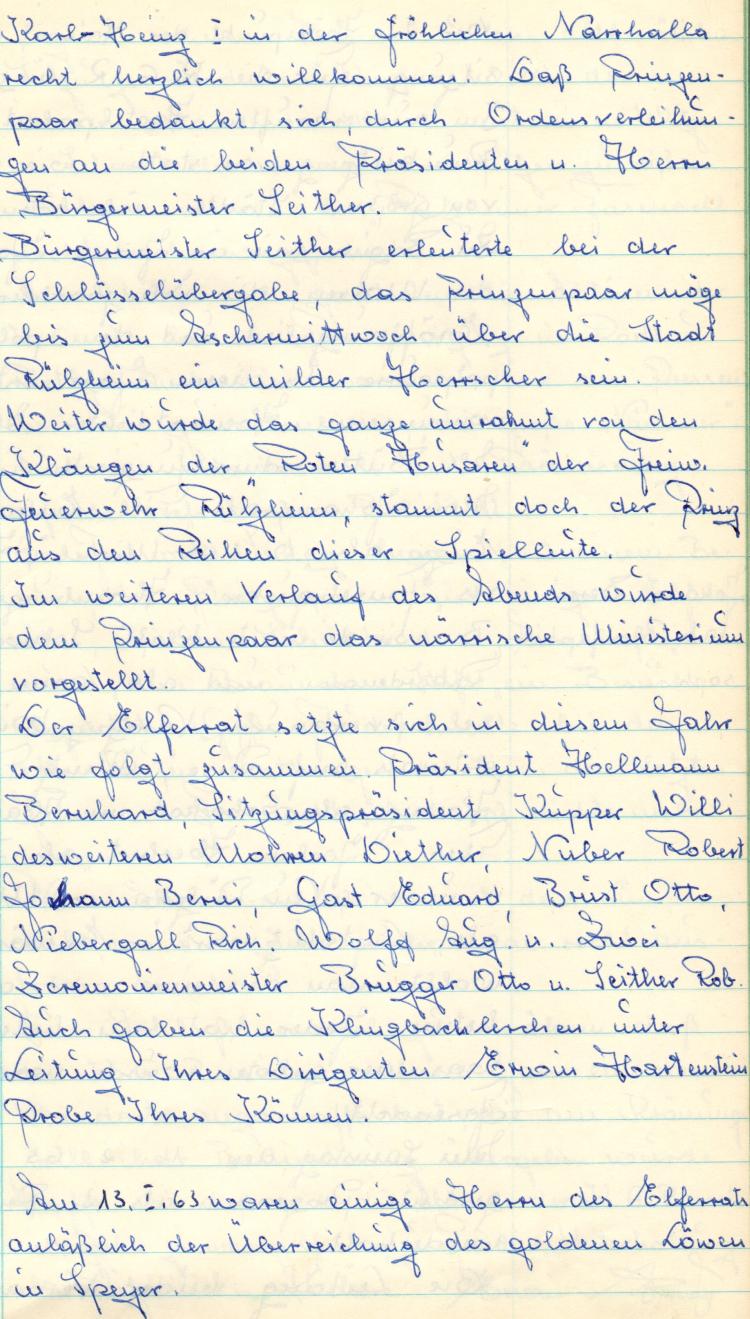 Karl-Heinz I in der fröhlichen Narrhalla
recht herzlich willkommen. Daß Prinzen-
paar bedankt sich, durch Ordensverleihun-
gen an die beiden Präsidenten u. Herrn
Bürgermeister Seither.
Bürgermeister Seither erleuterte bei der
Schlüsselübergabe, das Prinzenpaar möge
bis zum Aschermittwoch über die Stadt
Rülzheim ein milder Herrscher sein.
Weiter wurde das ganze umrahmt von den
Klängen der "Roten Husaren" der Freiw.
Feuerwehr Rülzheim, stammt doch der Prinz
aus den Reihen dieser Spielleute.
Im weiteren Verlauf des Abends wurde
dem Prinzenpaar das närrische Ministerium
vorgestellt.
Der Elferrat setzte sich in diesem Jahr
wie folgt zusammen. Präsident Hellmann
Bernhard, Sitzungspräsident Küpper Willi
desweiteren Mohren Diether, Nuber Robert
Johann Berni, Gast Eduard, Brust Otto,
Niebergall Rich, Wolff Aug. u. Zwei
Zeremonienmeister Brugger Otto u. Seither Rob.
Auch gaben die Klingbachlerchen unter
Leitung Ihres Dirigenten Erwin Hartenstein
Probe Ihres Können.
Am 13. I. 63 waren einige Herrn des Elferrats
anläßlich der Überreichung des goldenen Löwen
in Speyer.